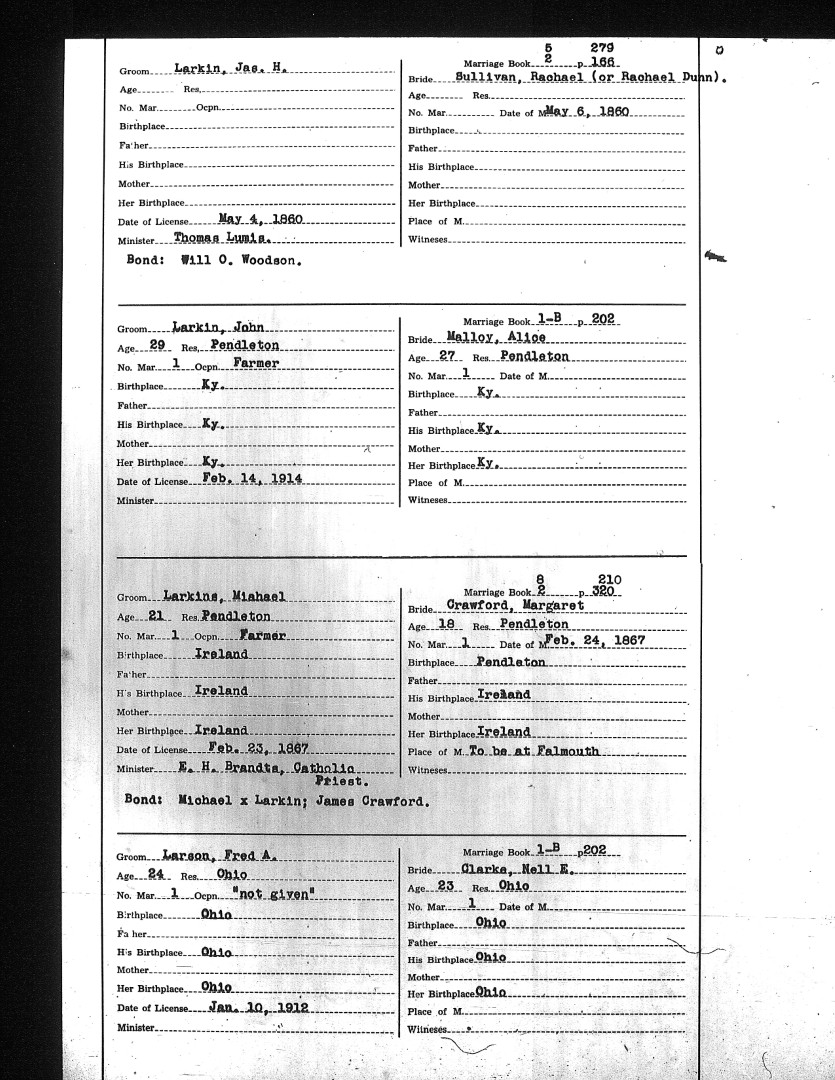 5 279
Marriage Book 2 p. 166
Groom Larkin, Jas. H.
Bride Sullivan, Rachael (or Rachael Dunn).
Age Res.
Age Res.
No. Mar. Ocpn.
No. Mar. Date of M. May 6, 1860
Birthplace
Birthplace
Father
Father
His Birthplace
His Birthplace
Mother
Mother
Her Birthplace
Her Birthplace
Date of License May 4, 1860
Place of M.
Minister Thomas Lumis.
Witneses
Bond: Will O. Woodson.
Marriage Book 1-B p. 202
Groom Larkin, John
Bride Malloy, Alice
Age 29 Res. Pendleton
Age 27 Res. Pendleton
No. Mar. 1 Ocpn. Farmer
No. Mar. 1 Date of M.
Birthplace Ky.
Birthplace Ky.
Father
Father
His Birthplace Ky.
His Birthplace Ky.
Mother
Mother
Her Birthplace Ky.
Her Birthplace Ky.
Date of License Feb. 14, 1914
Place of M.
Minister
Witneses
8 210
Marriage Book 2 p. 320
Groom Larkins, Michael
Bride Crawford, Margaret
Age 21 Res. Pendleton
Age 18 Res. Pendleton
No. Mar. 1 Ocpn. Farmer
No. Mar. 1 Date of M. Feb. 24, 1867
Birthplace Ireland
Birthplace Pendleton
Father
Father
His Birthplace Ireland
His Birthplace Ireland
Mother
Mother
Her Birthplace Ireland
Her Birthplace Ireland
Date of License Feb. 23, 1867
Place of M. To be at Falmouth
Minister E. H. Brandts, Catholic
Priest.
Witneses
Bond: Michael x Larkin; James Crawford.
Marriage Book 1-B p202
Groom Larson, Fred A.
Bride Clarke, Nell E.
Age 24 Res. Ohio
Age 23 Res. Ohio
No. Mar. 1 Ocpn. "not given"
No. Mar. 1 Date of M.
Birthplace Ohio
Birthplace Ohio
Father
Father
His Birthplace Ohio
His Birthplace Ohio
Mother
Mother
Her Birthplace Ohio
Her Birthplace Ohio
Date of License Jan. 10, 1912
Place of M.
Minister
Witneses